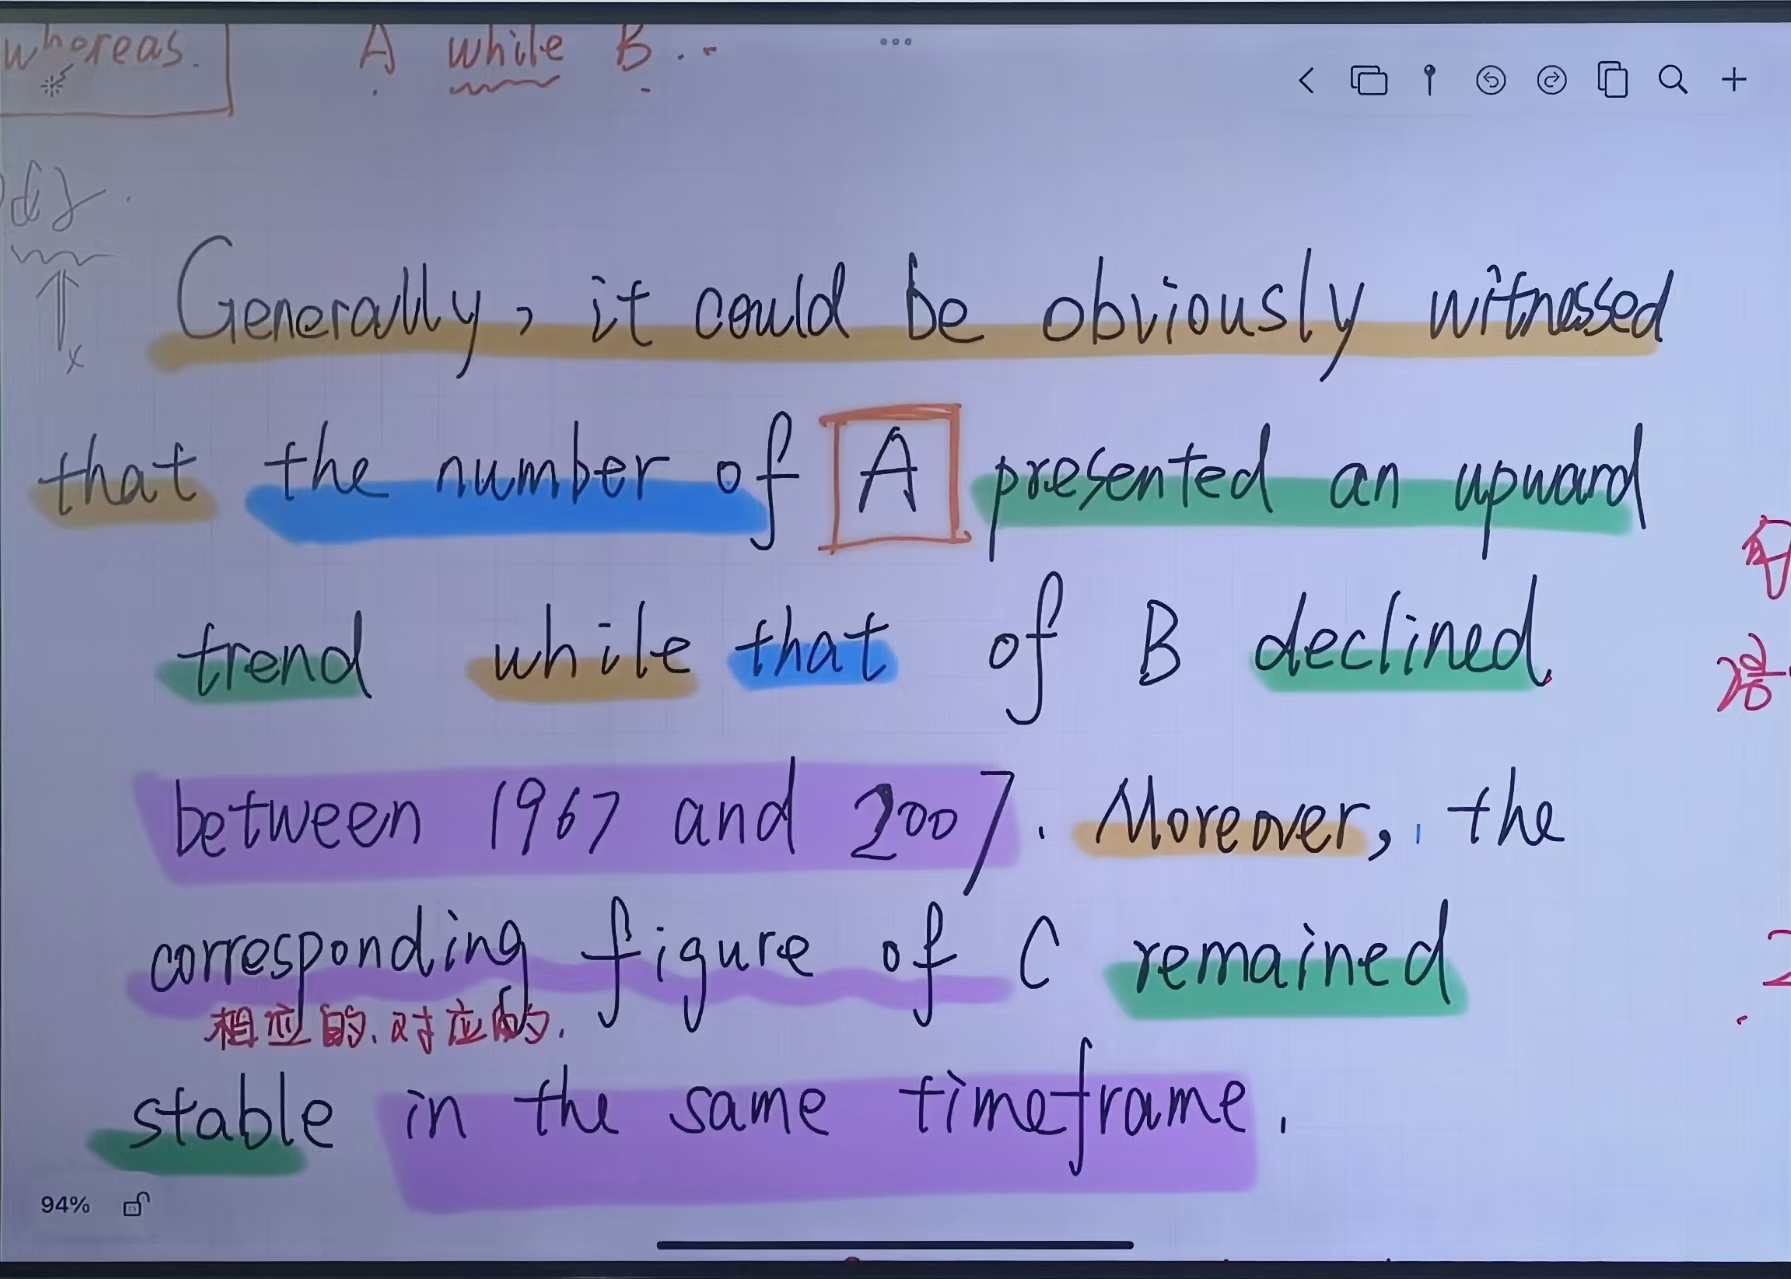 whereas.
A while B...
Generally, it could be obviously witnessed
that the number of A presented an upward
trend while that of B declined
between 1967 and 2007. Moreover, the
corresponding figure of C remained
相应的.对应的.
stable in the same timeframe.
94%